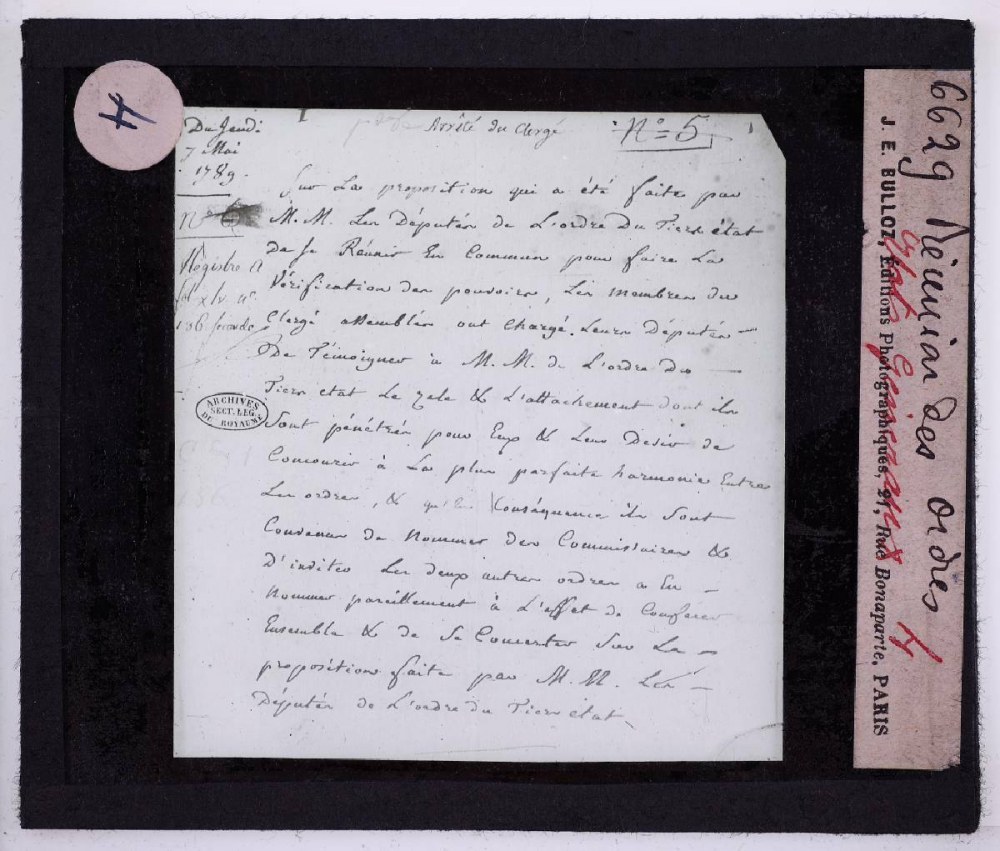 4
Du Jeudi
7 Mai
1789.
Arrêté du Clergé
N° 5
N° 6
Registre A
fol. xlv. n°
136 seconde
ARCHIVES
SECT. LEG.
DU ROYAUME
Sur La proposition qui a été faite par
M.M. Les Députés de L'ordre Du Tiers état
De se Réunir En Commun pour faire La
Vérification des pouvoirs, Les membres du
Clergé assemblés ont Chargé Leurs Députés
De Témoigner à M.M. de L'ordre Du
Tiers etat Le zele & L'attachement dont ils
Sont pénétrés pour Eux & Leur Desir de
Concourir à La plus parfaite harmonie Entre
Les ordres, & Conséquence ils Sont
Convenus de Nommer des Commissaires &
D'inviter Les deux autres ordres a En
Nommer pareillement à L'effet de Conférer
Ensemble & de Se Concerter Sur La
proposition faite par M.M. Les
Députés de L'ordre du Tiers état
6629 Réunion des ordres
Etats Généraux 4
J. E. BULLOZ, Éditions Photographiques, 21, Rue Bonaparte, PARIS